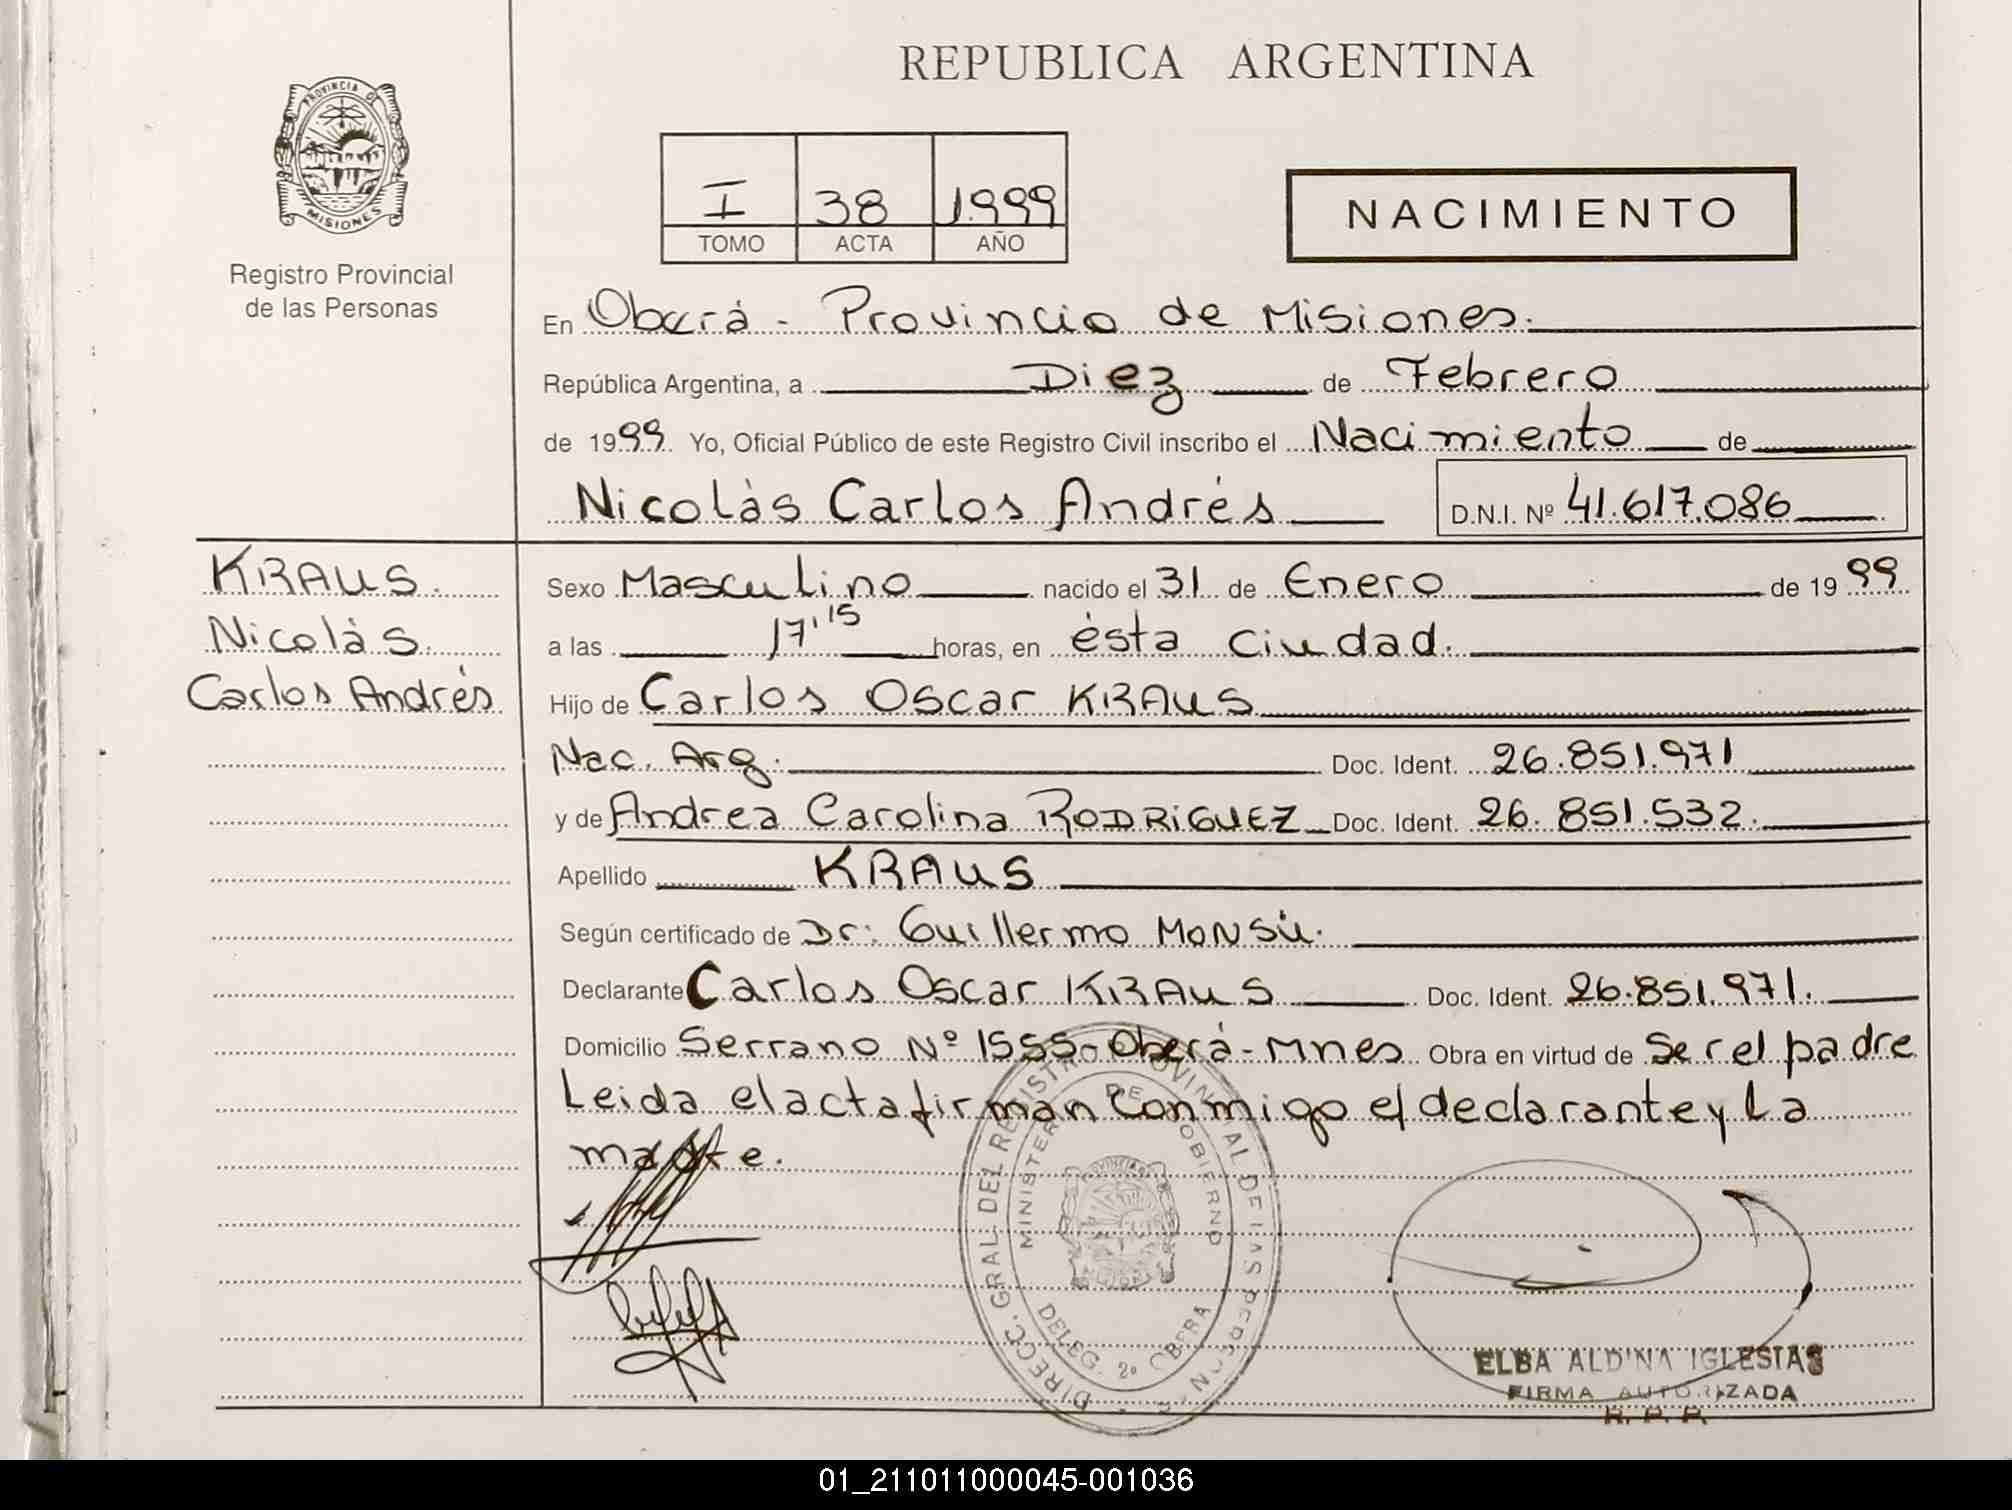 REPUBLICA ARGENTINA
PROVINCIA DE
MISIONES
Registro Provincial
de las Personas
I 38 1999
TOMO ACTA AÑO
NACIMIENTO
En Oberá - Provincia de Misiones.
República Argentina, a Diez de Febrero
de 1999. Yo, Oficial Público de este Registro Civil inscribo el Nacimiento de
Nicolás Carlos Andrés D.N.I. Nº 41.617.086
KRAUS.
Nicolás.
Carlos Andrés
Sexo Masculino nacido el 31 de Enero de 1999
a las 17'15 horas, en ésta Ciudad.
Hijo de Carlos Oscar KRAUS
Nac. Arg. Doc. Ident. 26.851.971
y de Andrea Carolina RODRIGUEZ Doc. Ident. 26.851.532.
Apellido KRAUS
Según certificado de Dr: Guillermo
Declarante Carlos Oscar KRAUS Doc. Ident. 26.851.971.
Domicilio Serrano Nº 1555-Oberá-Mnes Obra en virtud de Ser el padre
Leida el acta firman conmigo el declarante y la
madre.
DIRECC. GRAL. DEL REGISTRO PROVINCIAL DE LAS PERSONAS
MINISTERIO DE GOBIERNO
DELEG. 2º OBERA
ELBA ALDINA IGLESIAS
FIRMA AUTORIZADA
R. P. P.
01_211011000045-001036